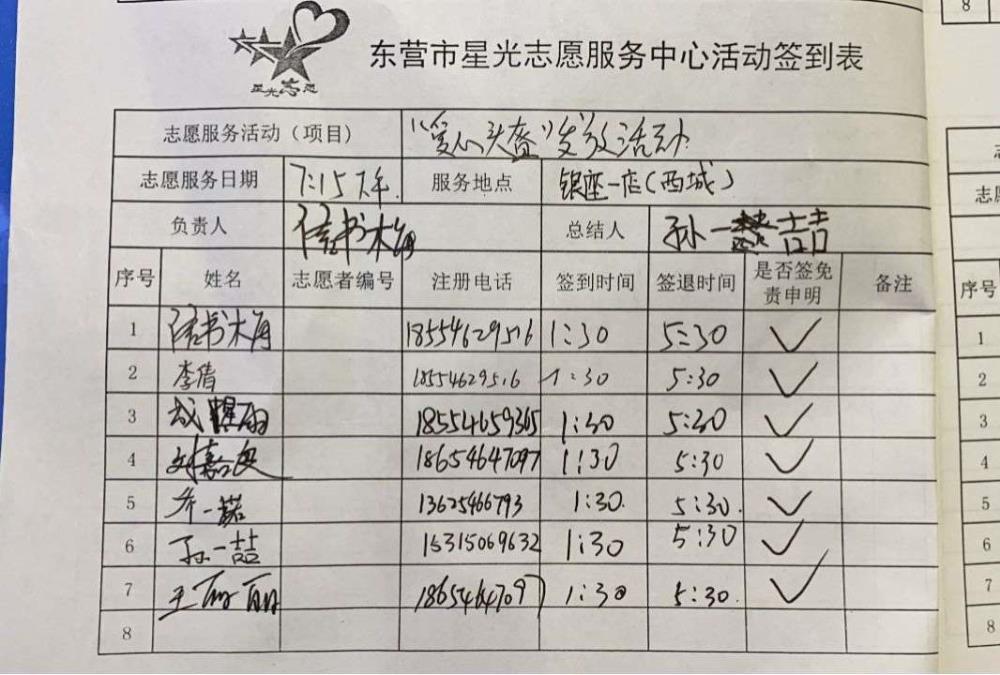 星光志愿
东营市星光志愿服务中心活动签到表
志愿服务活动（项目） “爱心头盔”发放活动
志愿服务日期 7:15 下午. 服务地点 银座一店（西城）
负责人 信书木海 总结人 孙一喆
序号 姓名 志愿者编号 注册电话 签到时间 签退时间 是否签免责申明 备注
1 18554629516 1:30 5:30 ✓
2 李倩 18554629516 1:30 5:30 ✓
3 18554659365 1:30 5:30 ✓
4 刘嘉 18654647097 1:30 5:30 ✓
5 乔一諾 13625466793 1:30. 5:30. ✓
6 孙一喆 15315069632 1:30 5:30 ✓
7 王丽丽 18654647097 1:30 5:30. ✓
8
8
志愿
序号
1
2
3
4
5
6
7
8